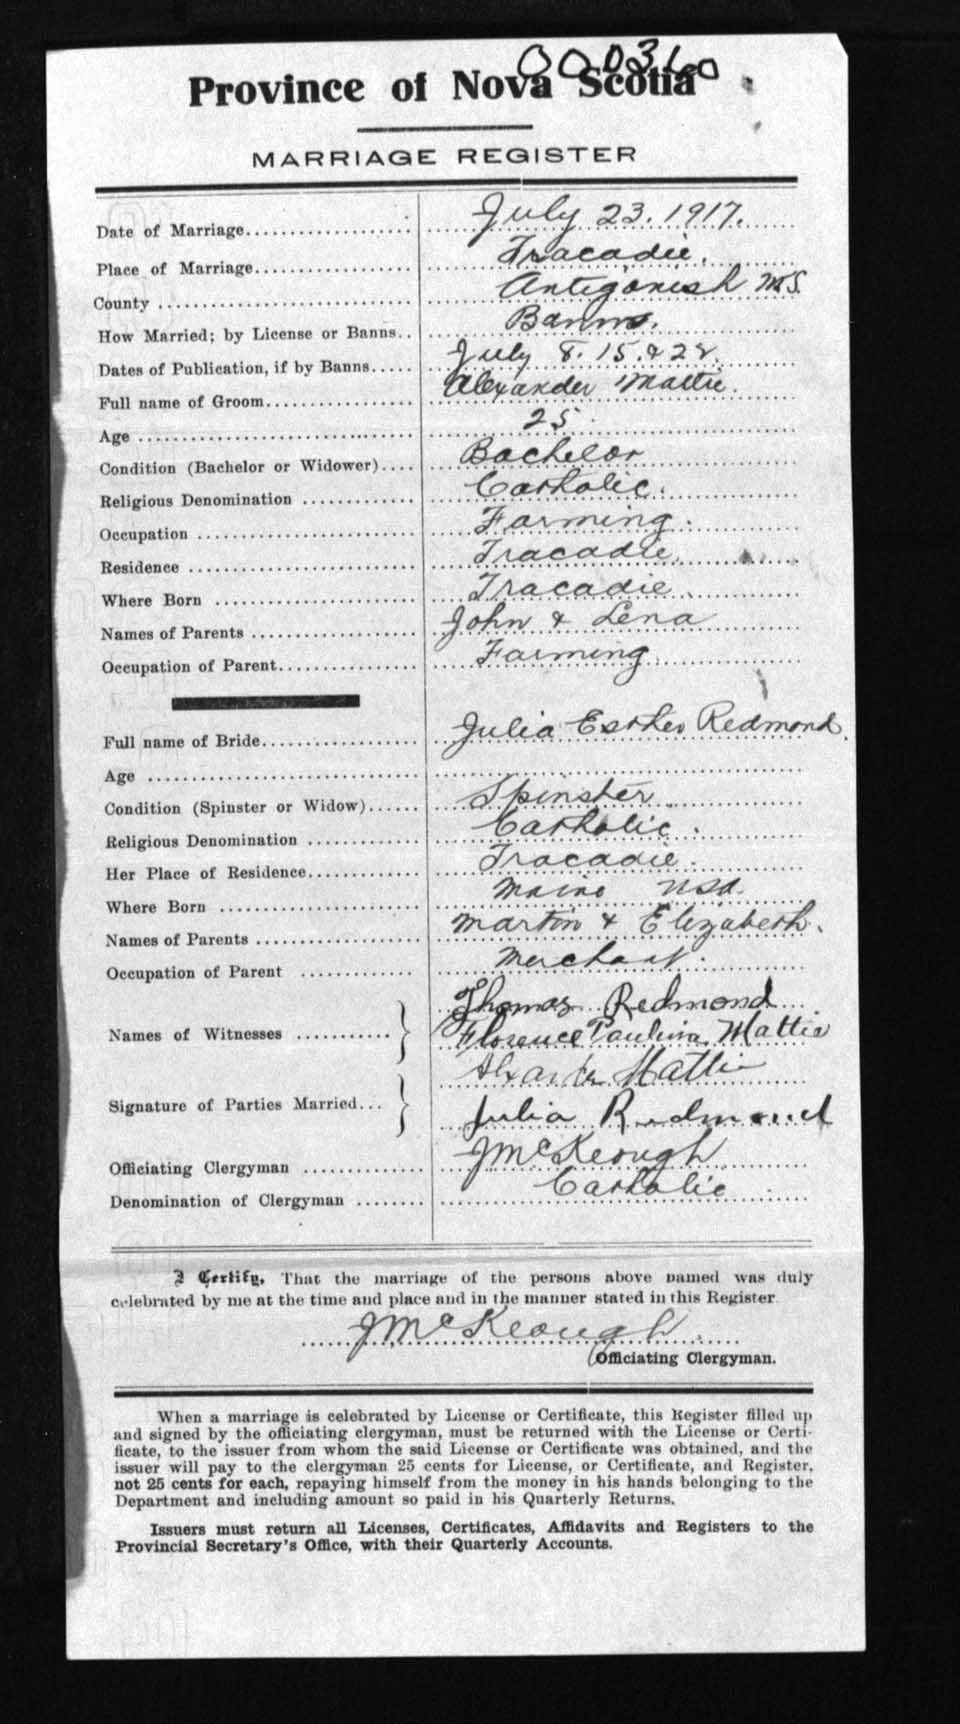 000360
Province of Nova Scotia
MARRIAGE REGISTER
Date of Marriage.................... July 23. 1917.
Place of Marriage................... Tracadie.
County ............................. Antigonish N.S.
How Married; by License or Banns.. Banns.
Dates of Publication, if by Banns..... July 8. 15. & 22.
Full name of Groom.................. Alexander Mattie.
Age ................................ 25.
Condition (Bachelor or Widower).... Bachelor
Religious Denomination ............. Catholic.
Occupation ......................... Farming.
Residence .......................... Tracadie.
Where Born ......................... Tracadie.
Names of Parents ................... John & Lena
Occupation of Parent................ Farming
Full name of Bride.................. Julia Esther Redmond.
Age ................................
Condition (Spinster or Widow)...... Spinster.
Religious Denomination ............. Catholic.
Her Place of Residence............. Tracadie.
Where Born ......................... Maine USA.
Names of Parents ................... Martin & Elizabeth.
Occupation of Parent ............. Merchant.
Names of Witnesses ........... } Thomas Redmond
Florence Paulina Mattie
Signature of Parties Married... } Alexander Mattie
Julia Redmond
Officiating Clergyman ............. J McKeough
Denomination of Clergyman ........ Catholic
I Certify, That the marriage of the persons above named was duly
celebrated by me at the time and place and in the manner stated in this Register.
J McKeough
Officiating Clergyman.
When a marriage is celebrated by License or Certificate, this Register filled up
and signed by the officiating clergyman, must be returned with the License or Certi-
ficate, to the issuer from whom the said License or Certificate was obtained, and the
issuer will pay to the clergyman 25 cents for License, or Certificate, and Register,
not 25 cents for each, repaying himself from the money in his hands belonging to the
Department and including amount so paid in his Quarterly Returns.
Issuers must return all Licenses, Certificates, Affidavits and Registers to the
Provincial Secretary's Office, with their Quarterly Accounts.